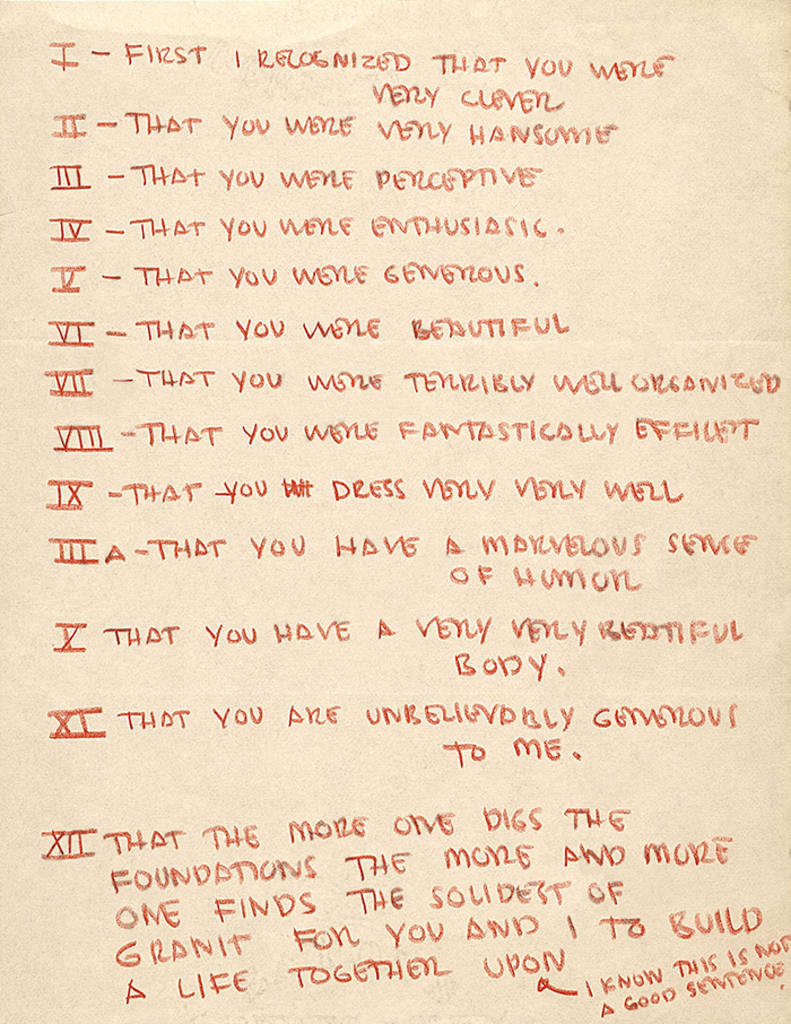 I - FIRST I RECOGNIZED THAT YOU WERE
VERY CLEVER
II - THAT YOU WERE VERY HANSOME
III - THAT YOU WERE PERCEPTIVE
IV - THAT YOU WERE ENTHUSIASIC.
V - THAT YOU WERE GENEROUS.
VI - THAT YOU WERE BEAUTIFUL
VII - THAT YOU WERE TERRIBLY WELL ORGANIZED
VIII - THAT YOU WERE FANTASTICALLY EFFICIET
IX - THAT YOU DRESS VERY VERY WELL
IIII A - THAT YOU HAVE A MARVELOUS SENSE
OF HUMOR
X THAT YOU HAVE A VERY VERY BEATIFUL
BODY.
XI THAT YOU ARE UNBELIEVABLY GENEROUS
TO ME.
XII THAT THE MORE ONE DIGS THE
FOUNDATIONS THE MORE AND MORE
ONE FINDS THE SOLIDEST OF
GRANIT FOR YOU AND I TO BUILD
A LIFE TOGETHER UPON
I KNOW THIS IS NOT
A GOOD SENTENCE.